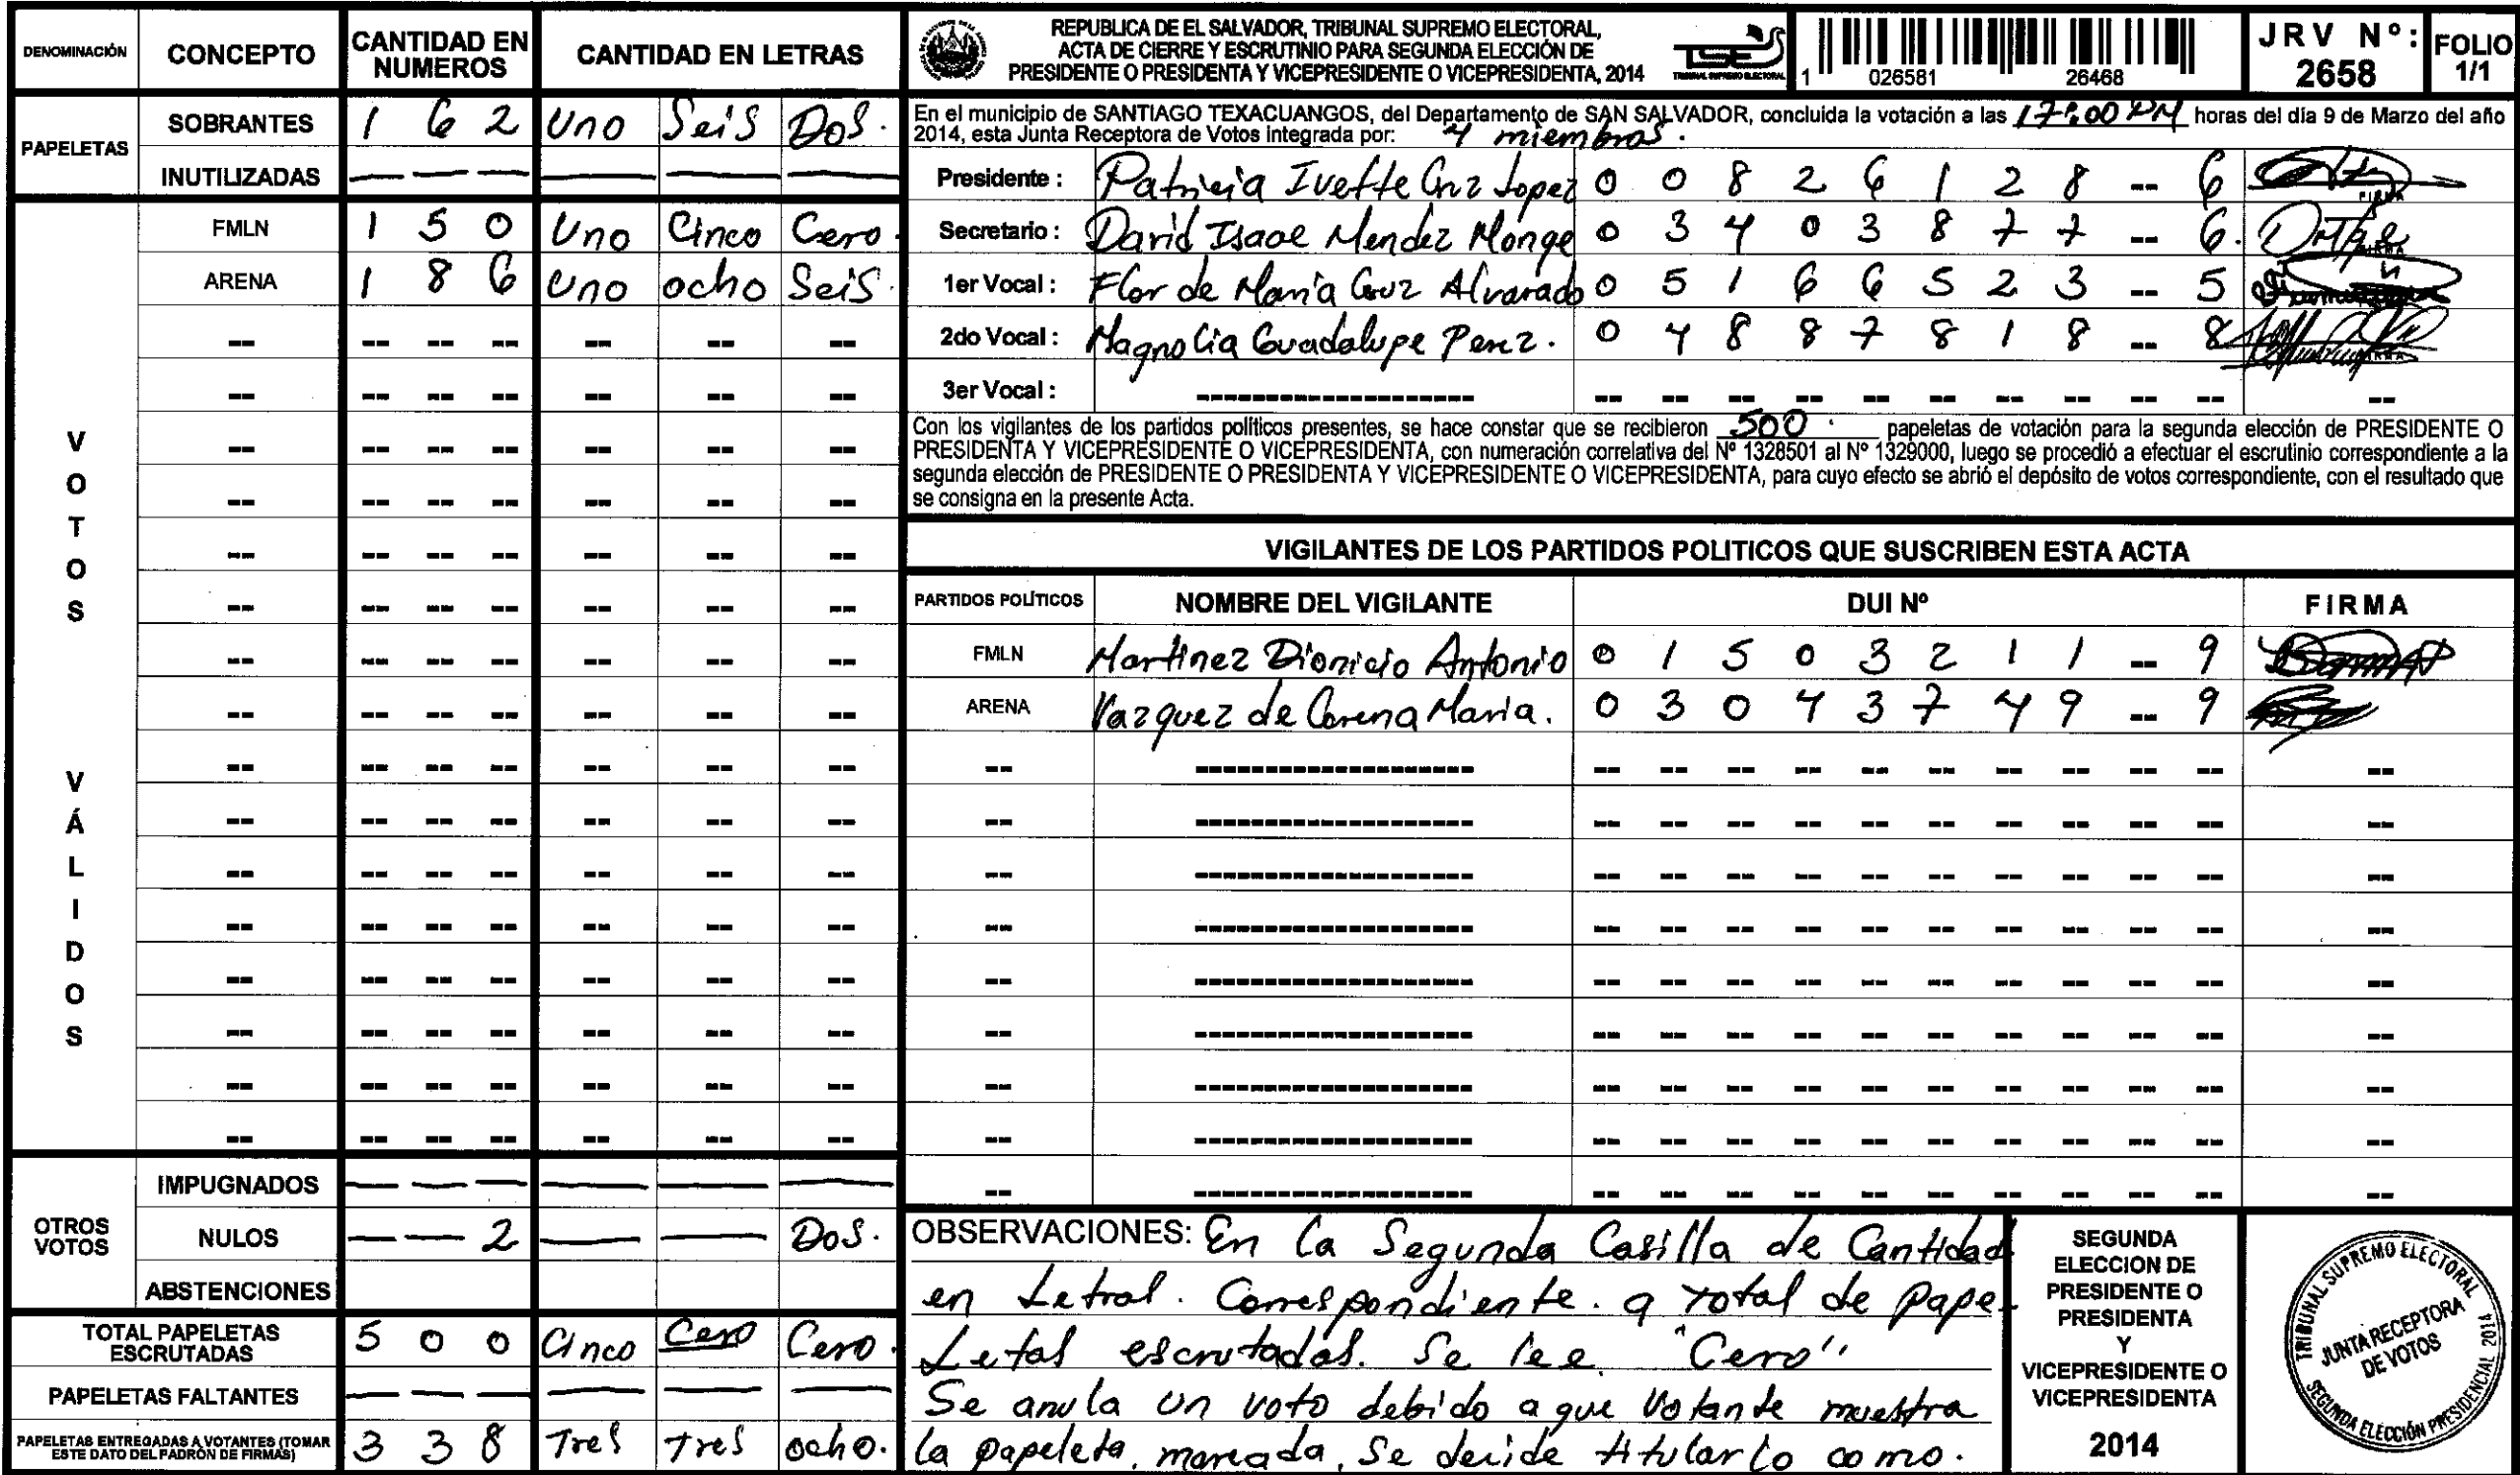 DENOMINACIÓN CONCEPTO CANTIDAD EN NUMEROS CANTIDAD EN LETRAS
PAPELETAS
SOBRANTES 1 6 2 Uno Seis Dos.
INUTILIZADAS — — — — — —
VOTOS VÁLIDOS
FMLN 1 5 0 Uno Cinco Cero.
ARENA 1 8 6 Uno ocho Seis.
OTROS VOTOS
IMPUGNADOS — — — — — —
NULOS — — 2 — — Dos.
ABSTENCIONES
TOTAL PAPELETAS ESCRUTADAS 5 0 0 Cinco Cero Cero.
PAPELETAS FALTANTES — — — — — —
PAPELETAS ENTREGADAS A VOTANTES (TOMAR ESTE DATO DEL PADRÓN DE FIRMAS) 3 3 8 Tres tres ocho.
REPUBLICA DE EL SALVADOR, TRIBUNAL SUPREMO ELECTORAL,
ACTA DE CIERRE Y ESCRUTINIO PARA SEGUNDA ELECCIÓN DE
PRESIDENTE O PRESIDENTA Y VICEPRESIDENTE O VICEPRESIDENTA, 2014
TRIBUNAL SUPREMO ELECTORAL
1 026581 26468
JRV Nº: 2658
FOLIO 1/1
En el municipio de SANTIAGO TEXACUANGOS, del Departamento de SAN SALVADOR, concluida la votación a las 17:00 PM horas del día 9 de Marzo del año
2014, esta Junta Receptora de Votos integrada por: 4 miembros.
Presidente : Patricia Ivette Cruz Lopez 0 0 8 2 6 1 2 8 -- 6
Secretario : David Isaac Mendez Monge 0 3 4 0 3 8 7 7 -- 6.
1er Vocal : Flor de Maria Cruz Alvarado 0 5 1 6 6 5 2 3 -- 5
2do Vocal : Magnolia Guadalupe Perez. 0 4 8 8 7 8 1 8 -- 8
3er Vocal :
Con los vigilantes de los partidos políticos presentes, se hace constar que se recibieron 500 papeletas de votación para la segunda elección de PRESIDENTE O
PRESIDENTA Y VICEPRESIDENTE O VICEPRESIDENTA, con numeración correlativa del Nº 1328501 al Nº 1329000, luego se procedió a efectuar el escrutinio correspondiente a la
segunda elección de PRESIDENTE O PRESIDENTA Y VICEPRESIDENTE O VICEPRESIDENTA, para cuyo efecto se abrió el depósito de votos correspondiente, con el resultado que
se consigna en la presente Acta.
VIGILANTES DE LOS PARTIDOS POLITICOS QUE SUSCRIBEN ESTA ACTA
PARTIDOS POLÍTICOS NOMBRE DEL VIGILANTE DUI Nº FIRMA
FMLN Martinez Dionicio Antonio 0 1 5 0 3 2 1 1 -- 9
ARENA Vazquez de Corena Maria. 0 3 0 4 3 7 4 9 -- 9
OBSERVACIONES: En la Segunda Casilla de Cantidad
en Letras. Correspondiente. a total de pape-
letas escrutadas. Se lee "Cero"
Se anula un voto debido a que Votante muestra
la papeleta, marcada, Se decide titularlo como.
SEGUNDA
ELECCION DE
PRESIDENTE O
PRESIDENTA
Y
VICEPRESIDENTE O
VICEPRESIDENTA
2014
TRIBUNAL SUPREMO ELECTORAL
JUNTA RECEPTORA
DE VOTOS
SEGUNDA ELECCIÓN PRESIDENCIAL 2014